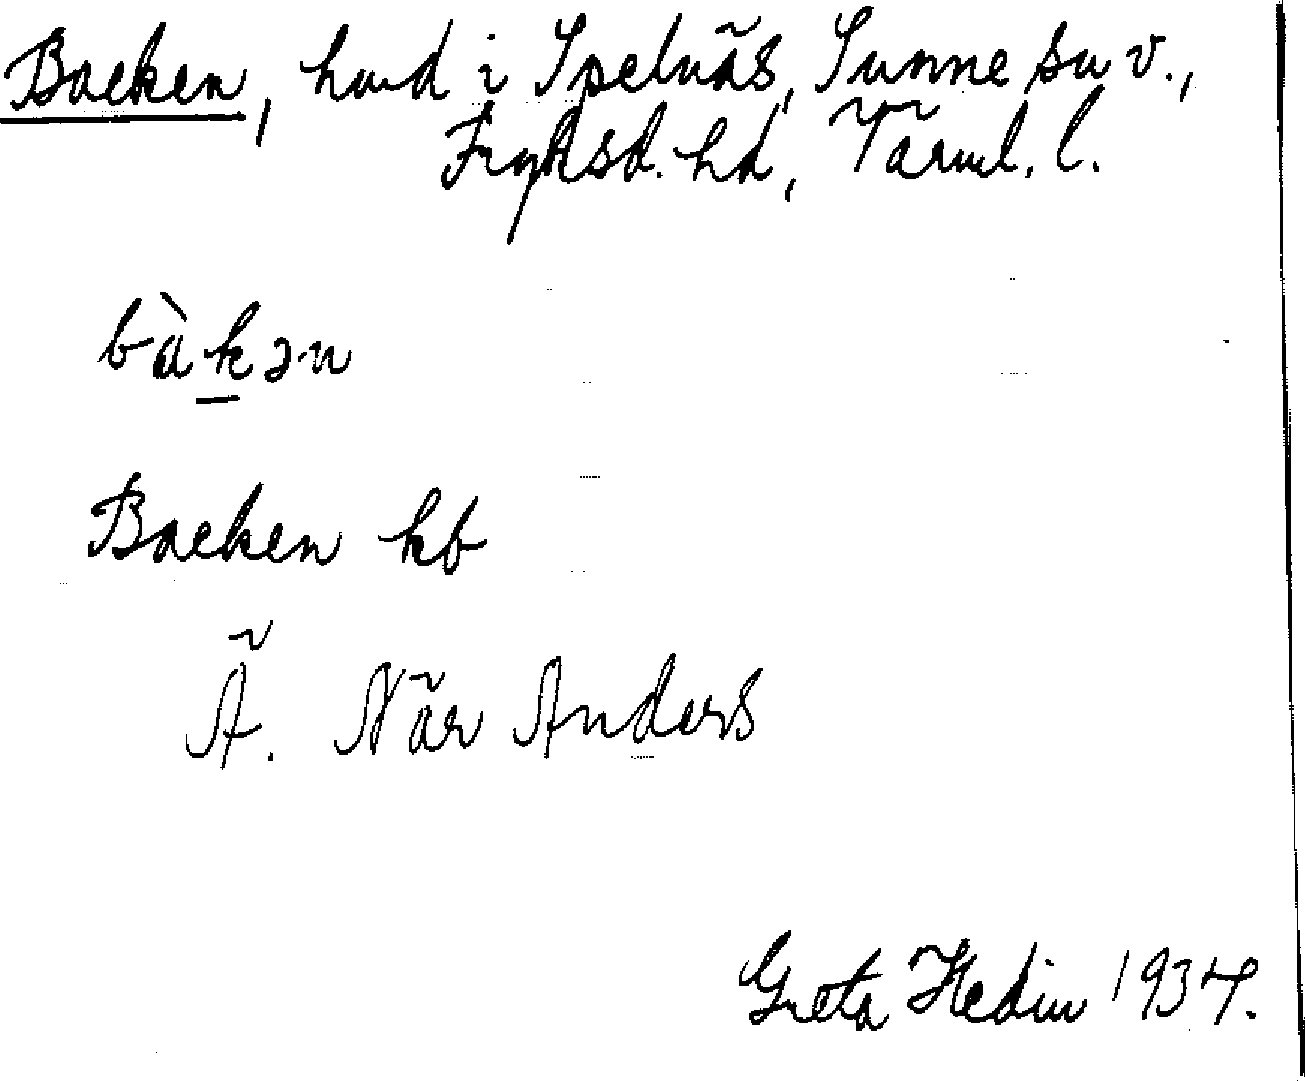 Backen, hmd i Spelnäs, Sunne sn v.,
Fryksd. hd, Värml. l.
bàkən
Backen kb
Ä. När Anders
Greta Hedin 1934.